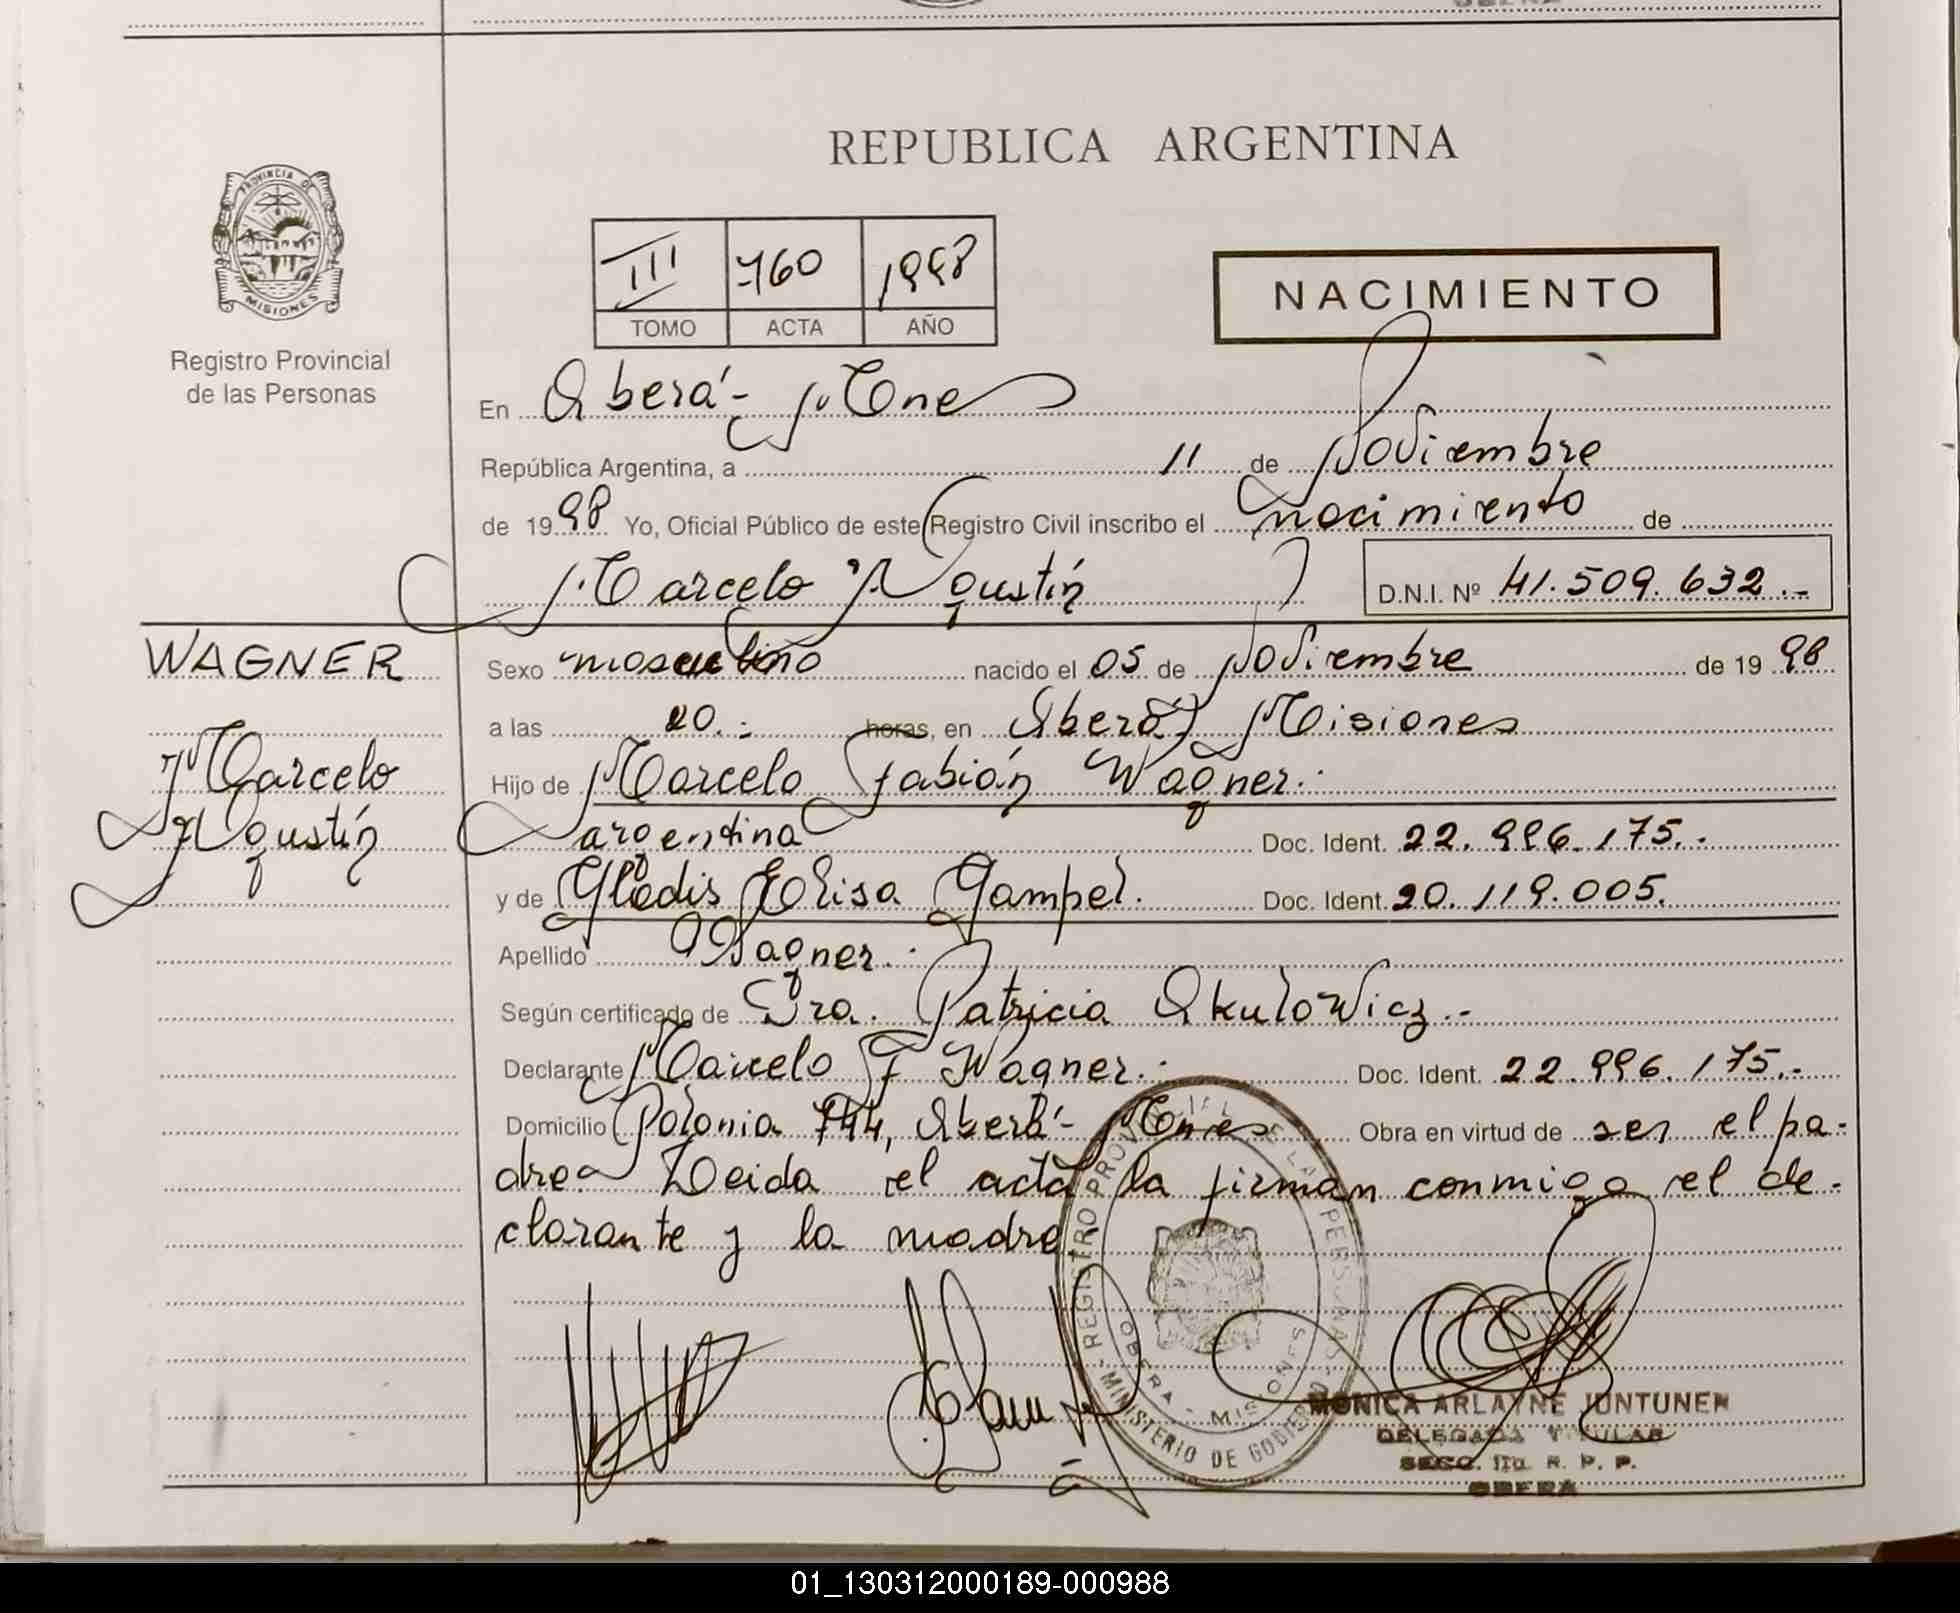 REPUBLICA ARGENTINA
PROVINCIA DE
MISIONES
Registro Provincial
de las Personas
III 760 1998
TOMO ACTA AÑO
NACIMIENTO
En Oberá - Mones
República Argentina, a 11 de Noviembre
de 1998 Yo, Oficial Público de este Registro Civil inscribo el nacimiento de
Marcelo Agustín D.N.I. Nº 41.509.632.-
WAGNER
Marcelo
Agustín
Sexo masculino nacido el 05 de Noviembre de 1998
a las 20.- horas, en Oberá, Misiones
Hijo de Marcelo Fabián Wagner.-
argentina Doc. Ident. 22.996.175.-
y de Gladis Elisa Gampel. Doc. Ident. 20.119.005.
Apellido Wagner.-
Según certificado de Dra. Patricia Akulowicz.-
Declarante Marcelo F Wagner.- Doc. Ident. 22.996.175.-
Domicilio Polonia 744, Oberá - Mones Obra en virtud de ser el pa-
dre. Leida el acta la firman conmigo el de-
clarante y la madre.
REGISTRO PROVINCIAL DE LAS PERSONAS
OBERA - MISIONES
MINISTERIO DE GOBIERNO
MONICA ARLAYNE JUNTUNEN
DELEGADA TITULAR
SECC. 1ra. R. P. P.
OBERA
01_130312000189-000988